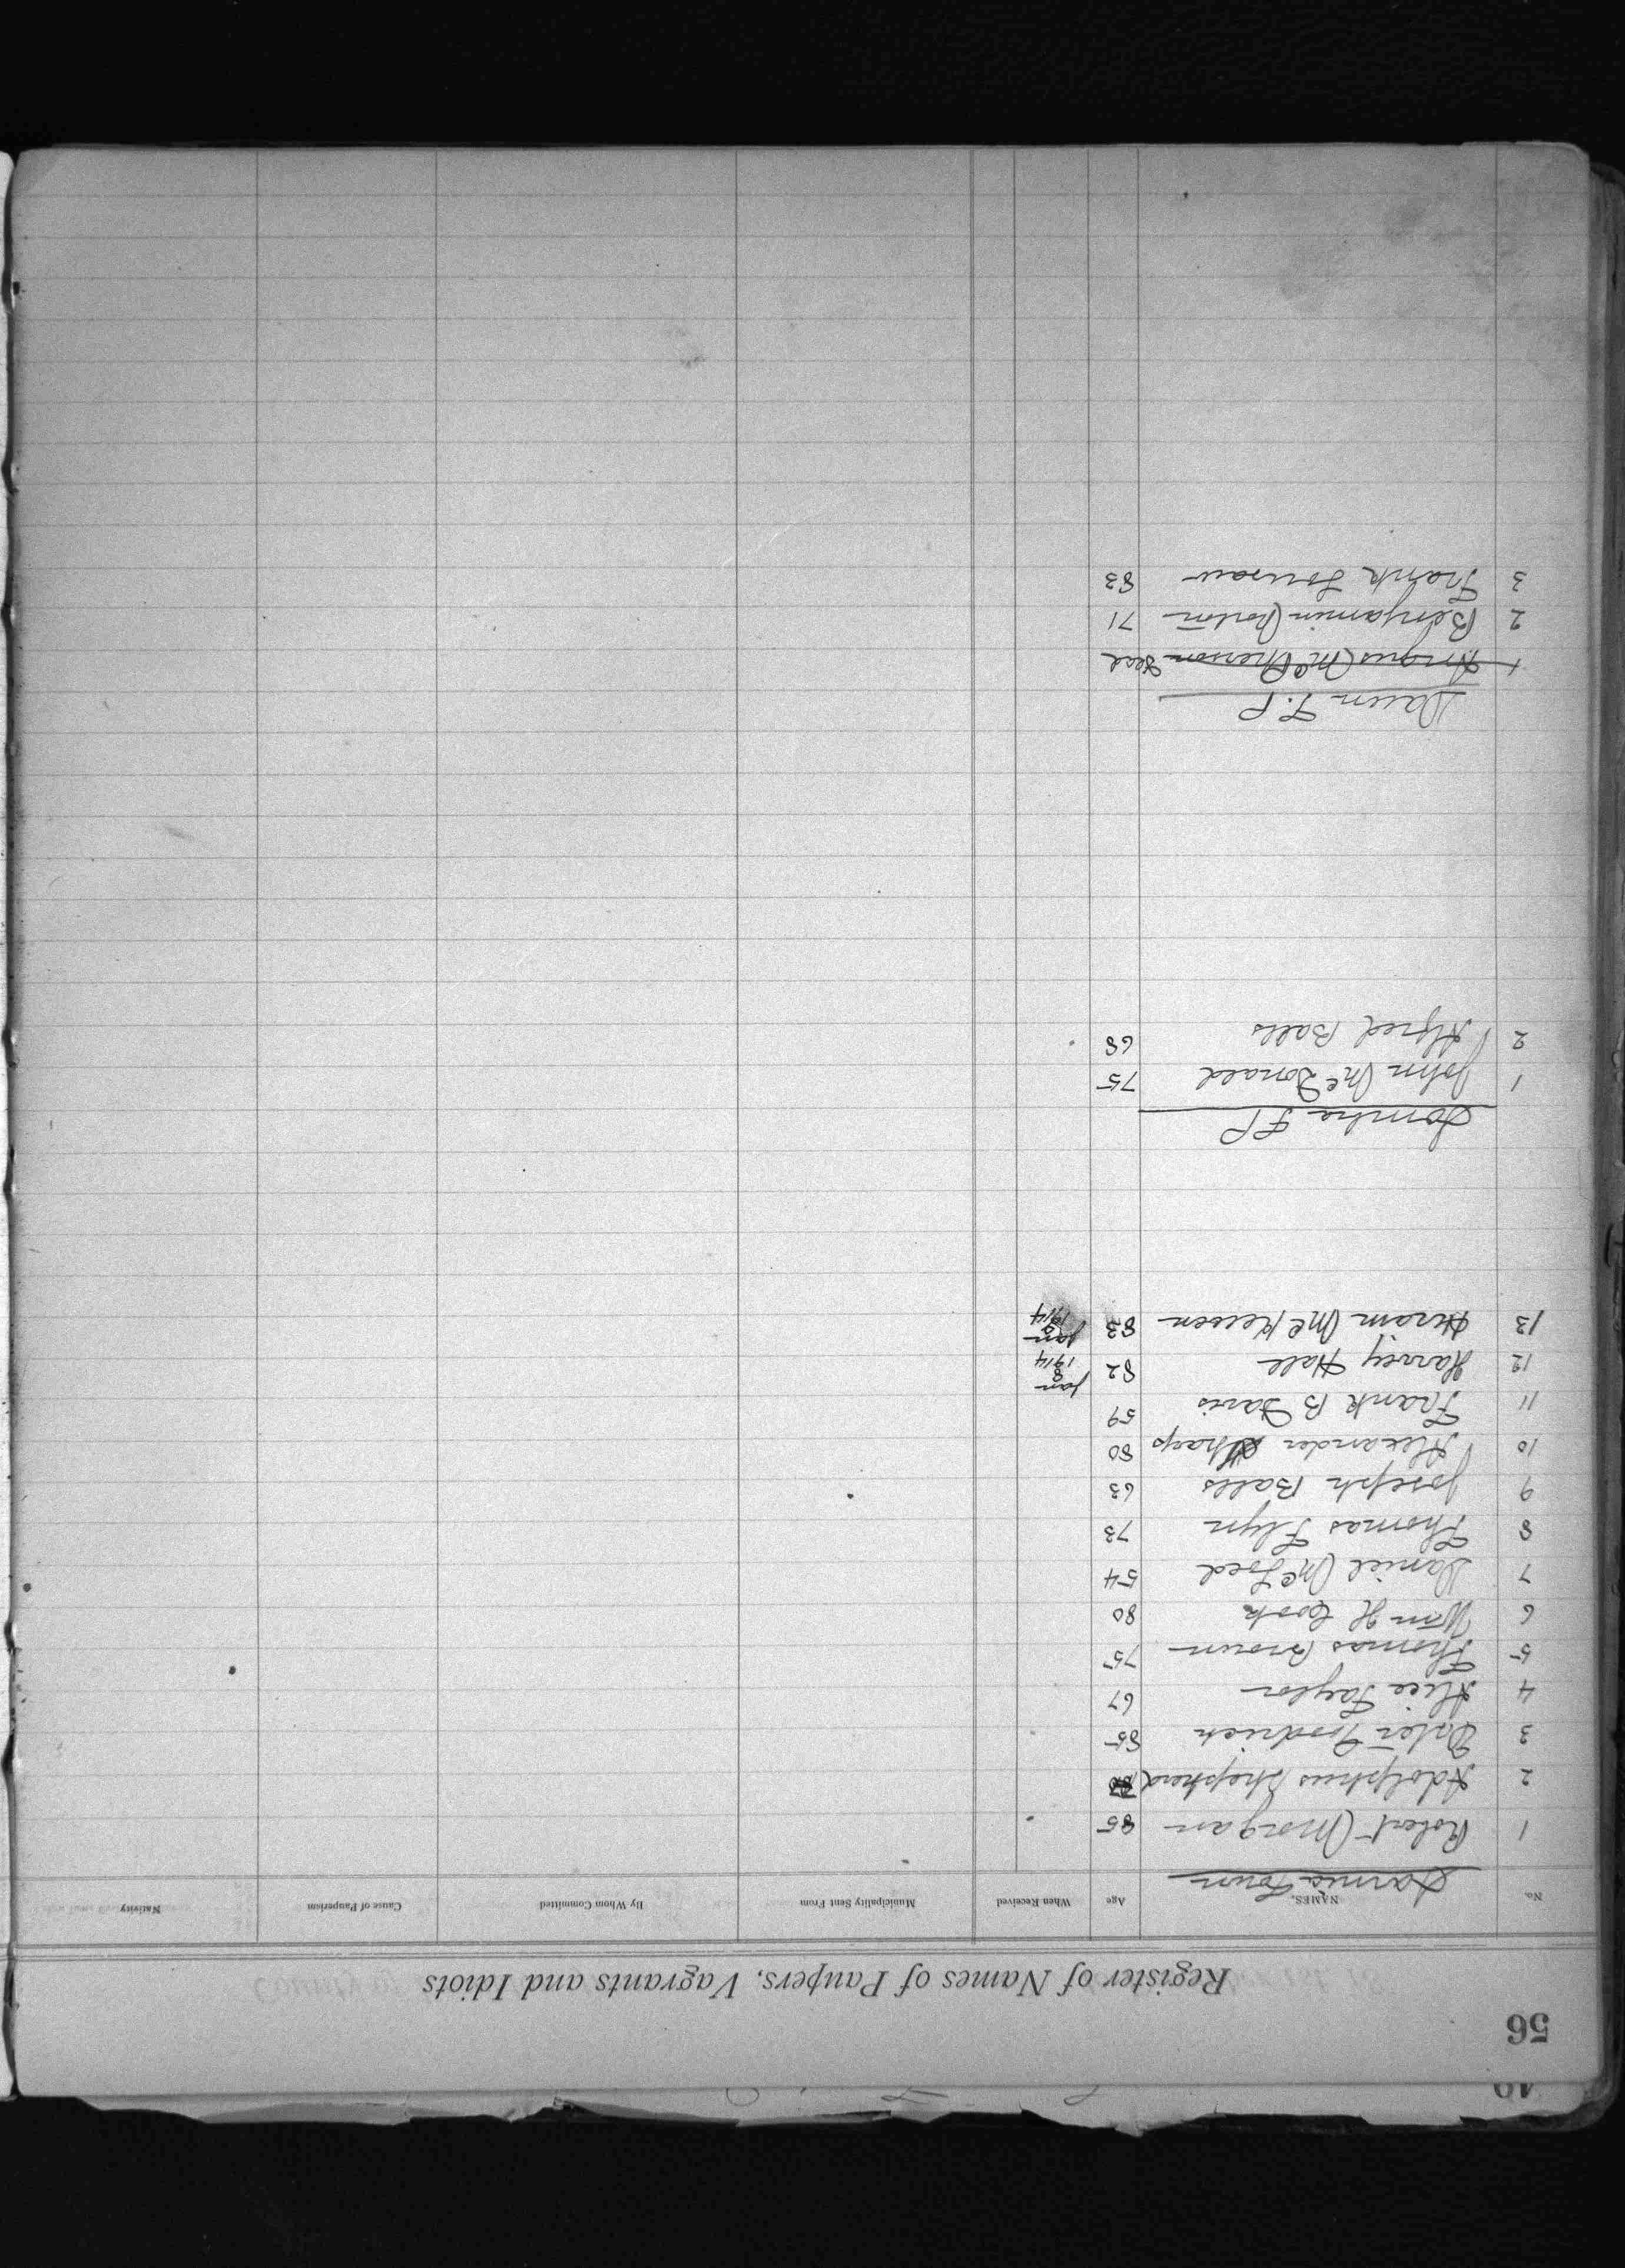 56
Register of Names of Paupers, Vagrants and Idiots
No. NAMES. Age When Received Municipality Sent From By Whom Committed Cause of Pauperism Nativity
Sarnia Town
1 Robert Morgan 85
2 Adolphus Shepherd
3 Peter Goodrich 85
4 Alice Taylor 67
5 Thomas Brown 75
6 Wm H Cook 80
7 Daniel McLeod 54
8 Thomas Flyn 73
9 Joseph Balls 63
10 Alexander Sharp 80
11 Frank B Davis 59
12 Harvey Hall 82 Jan 8 1914
13 Hiram McKeown 83 Jan 1914
Sombra T P
1 John McDonald 75
2 Alfred Balls 68
Dawn T. P
1 Angus McPherson Dead
2 Benjamin Morton 71
3 Frank 83